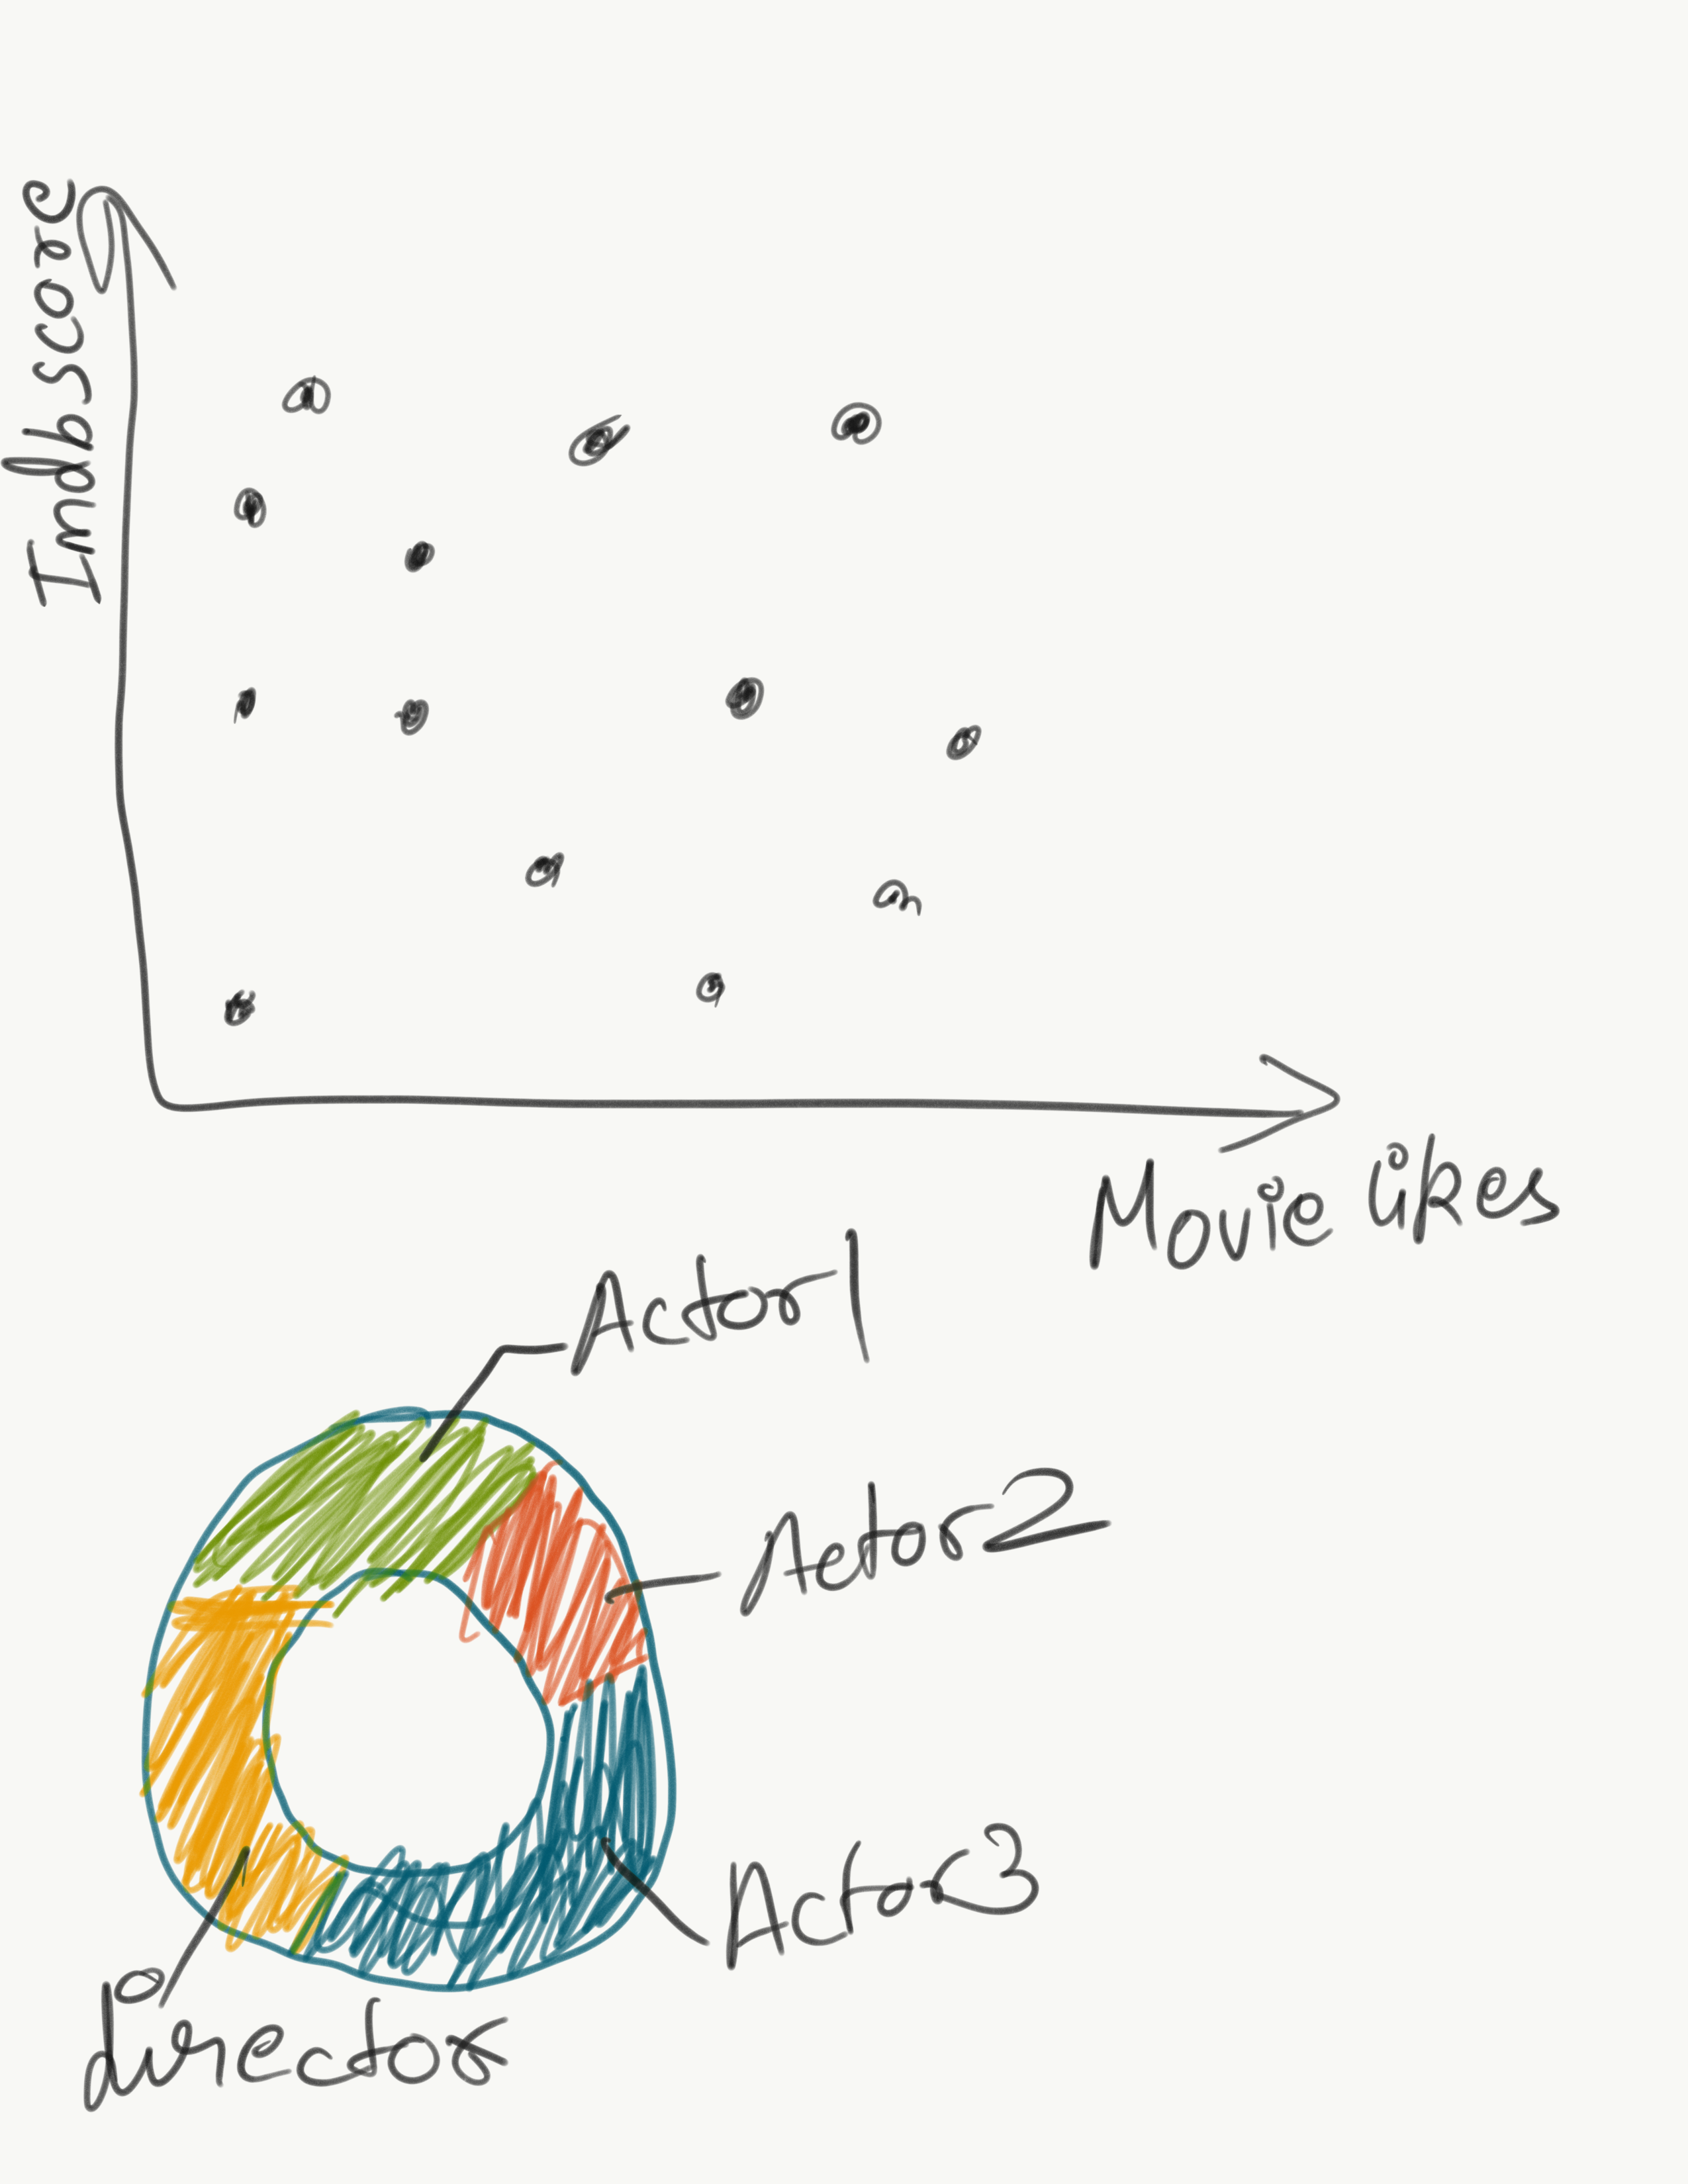 Imdb score
Movie likes
Actor1
Actor2
Actor3
director